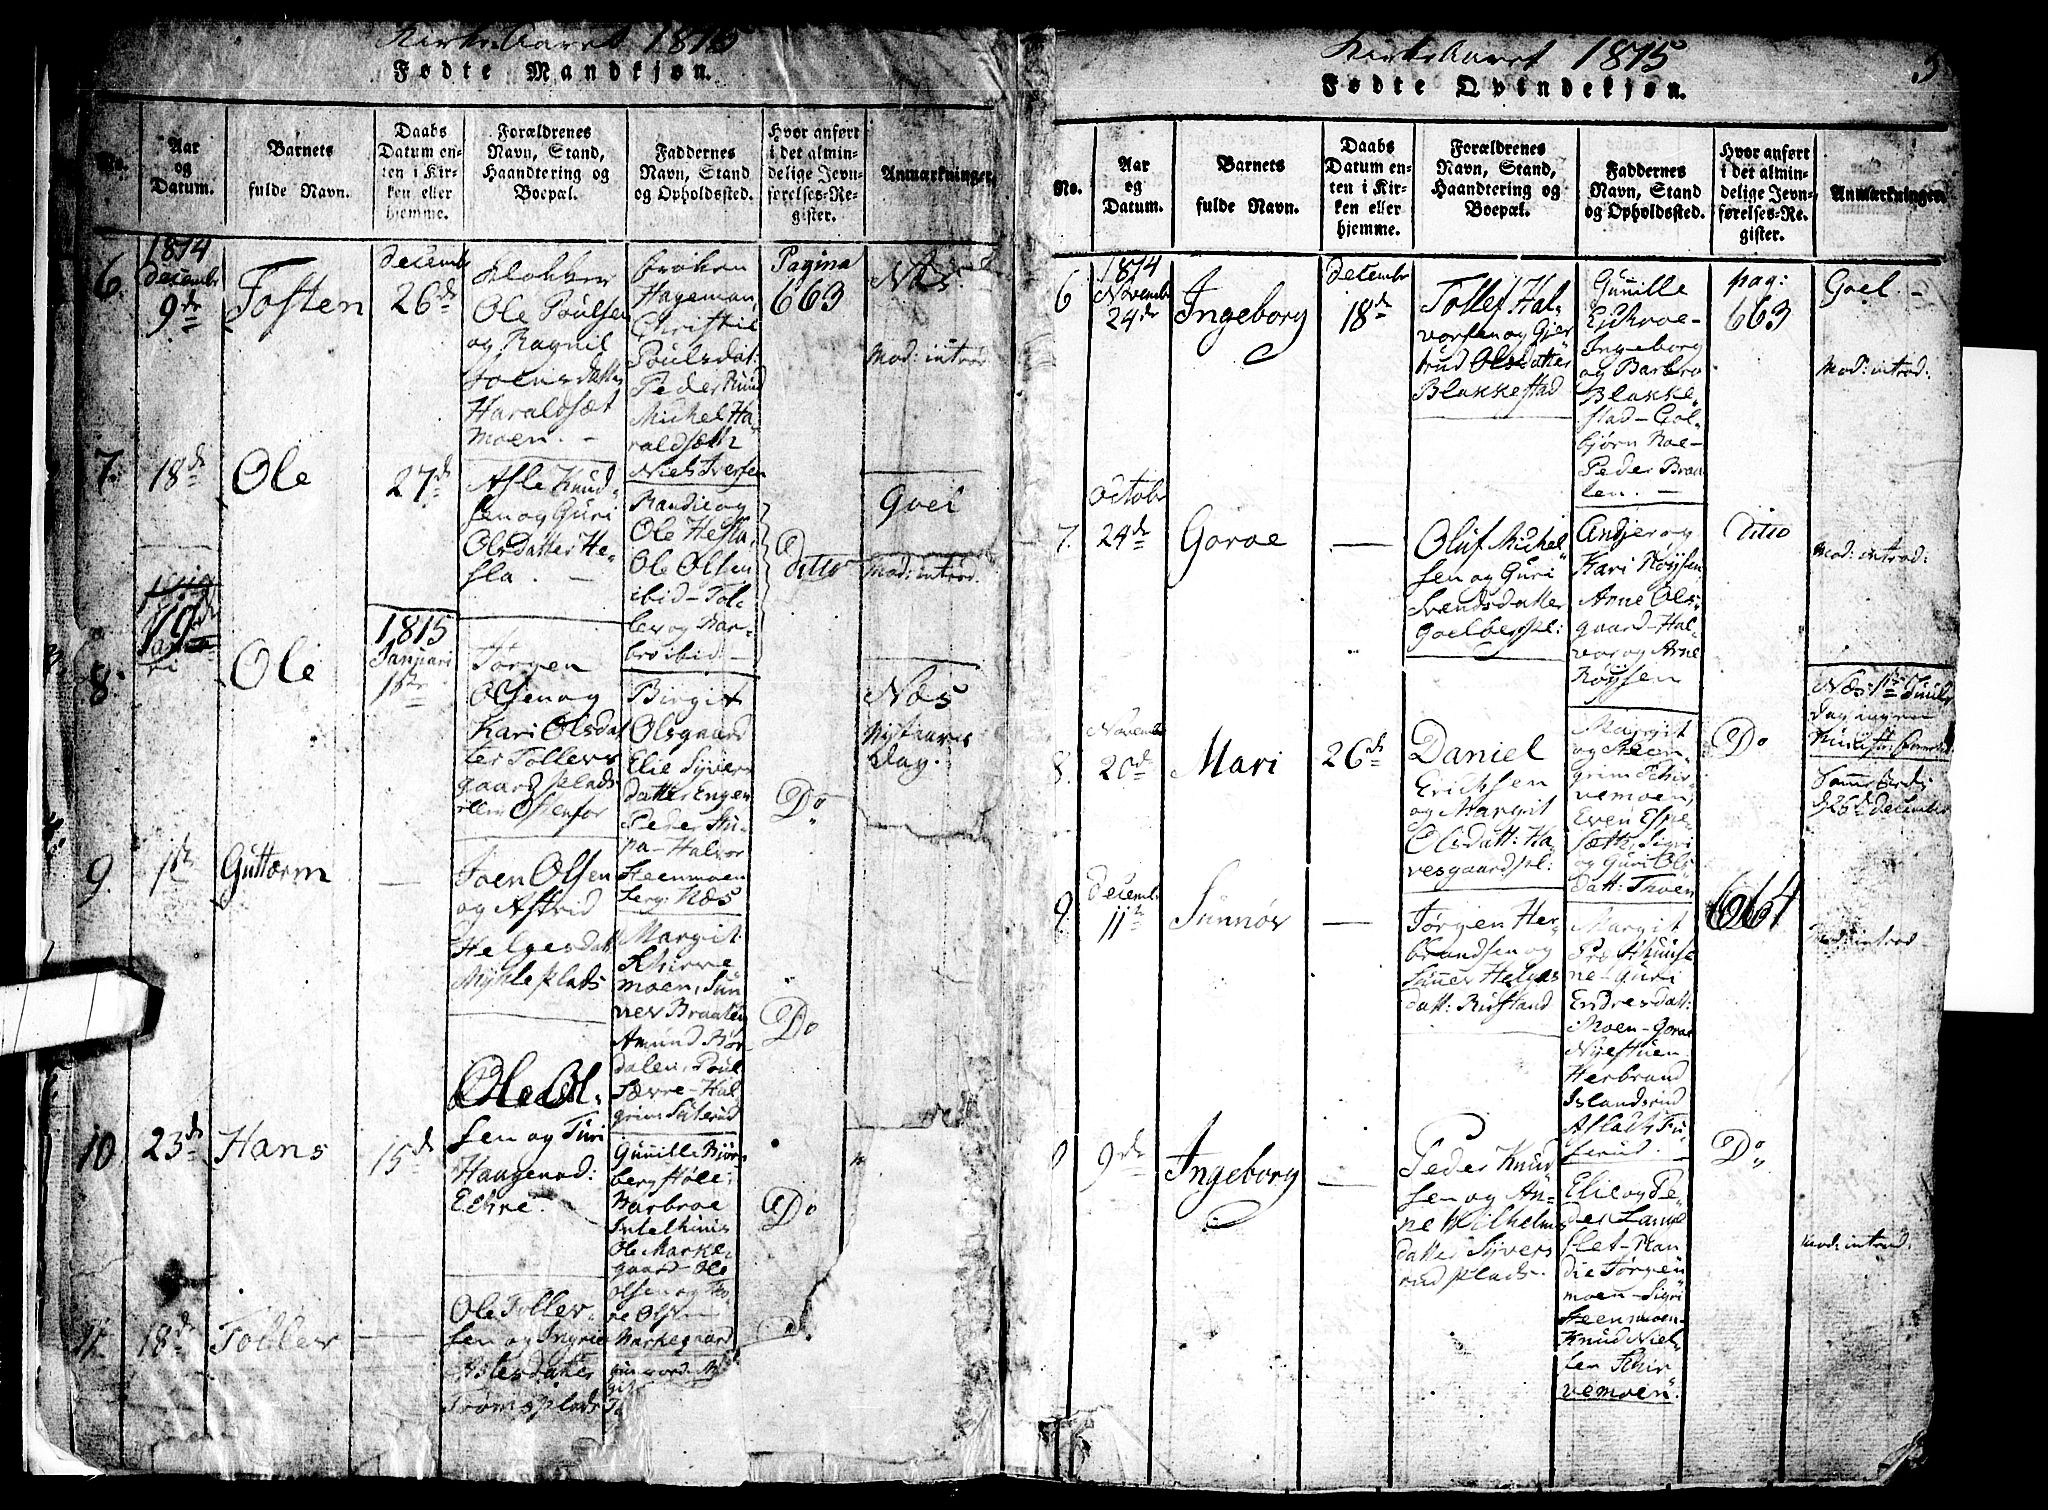 Kirke Aaret 1815
Fødte Mandkjøn.
No.
Aar
og
Datum.
Barnets
fulde Navn.
Daabs
Datum en-
ten i Kir-
ken eller
hjemme.
Forældrenes
Navn, Stand,
Haandtering og
Boepæl.
Faddernes
Navn, Stand
og Opholdssted.
Hvor anført
i det almin-
delige Jevn-
førelses-Re-
gister.
Anmærkninger.
6.
1814
decembr
9de
Tosten
decembr
26de
Klokker
Ole Poulsen
og Ragnil
Joensdatter
Haraldsæt
moen. -
Frøken
Hageman,
Christie
Poulsdat:
Peder Ruud
Michel Ha-
raldsæth
Niels Iversen
Pagina
663
Næs.
Mod: introd
7.
18de
Ole
27de
Asle Knud-
sen og Guri
Olsdatter He-
sla. -
Randi og
Ole Hesla,
Ole Olsen
ibid - Tol-
lev og Bar-
bro ibid -
ditto
Goel
Mod: introd.
8.
19de
Januari
Ole
1815
Januari
1ste
Jørgen
Olsen og
Kari Olsdat
ter Tollevs
gaard plads
Birgit
Olsgaard
Elie Syvers
datter Engen
Peder
Halvor
Steenmoen
Berg: Næs
Do
Næs
Nytaars
Dag.
9.
1ste
Guttorm
Joen Olsen
og Astrid
Helgesdatt
Myhle plads
Margit
Skirve
moen, Sün
nev Braaten
Amund Bør
dalen, Poul
Sævre - Hal
grim Sæterud
Do
10
23de
Hans
15de
Ole Ol-
sen og Turi
Haagensd:
Echre.
Gunille Biørn
berg støle,
Barbroe
Ole Marke-
gaard - Ole
Olsen og
Olsen
Markegaard
Do
11.
18de
Tollev
Ole Tollev-
sen og Ingrie
Aslesdatter
Trøms plads
Kirke Aaret 1815
3
Fødte Qvindekjøn.
No.
Aar
og
Datum.
Barnets
fulde Navn.
Daabs
Datum en-
ten i Kir-
ken eller
hjemme.
Forældrenes
Navn, Stand,
Haandtering og
Boepæl.
Faddernes
Navn, Stand
og Opholdssted.
Hvor anført
i det almin-
delige Jevn-
førelses-Re-
gister.
Anmærkninger.
6
1814
Novembr
24de
Ingeborg
decembr
18de
Tollef Hal-
vorsen og Gier
trud Olsdatter
Blakkestad
Gunille
Eichroe-
Ingeborg
og Barbro
Blakke-
stad - Gol-
bjørn Roe-
Peder Braa
ten. -
pag:
663
Goel -
Mod: introd:
7.
Octobr
24de
Goroe
Oluf Michel
sen og Guri
Svendsdatter
Goelbergspl:
Andjer og
Kari Røysen,
Arne Ols-
gaard - Hal-
vor og Arne
Røysen
ditto
Mod: introd:
8.
Novembr
20de
Mari
26de
Daniel
Erichsen
og Margit
Olsdatt: Ha-
vesgaardspl:
Margit
og Steen
grim Skir
vemoen,
Even Espe-
sæth, Sigri
og Guri Ols
datt: Thoen
Do
Næs 1ste Juule
dag
26de december
9.
decembr
11te
Sunnøv
Jørgen Her-
brandsen og
Sünev Helges
datt: Rustand
Margit
ne - Guri
Endresdatt:
Moen - Goroe
Nyestuen
Herbrand
Islandsrud
Aslach Fu-
serud.
664
Mod: introd
9de
Ingeborg
Peder Knud
sen og An-
ne Wilhelms
datter Syvers
rud plads.
Elie og Pe-
der Lanne
slet - Ran
die Jørgen
moen - Sigri
Steenmoen-
Knud Niel
sen Skir
vemoen.
Do
Mod: introd.